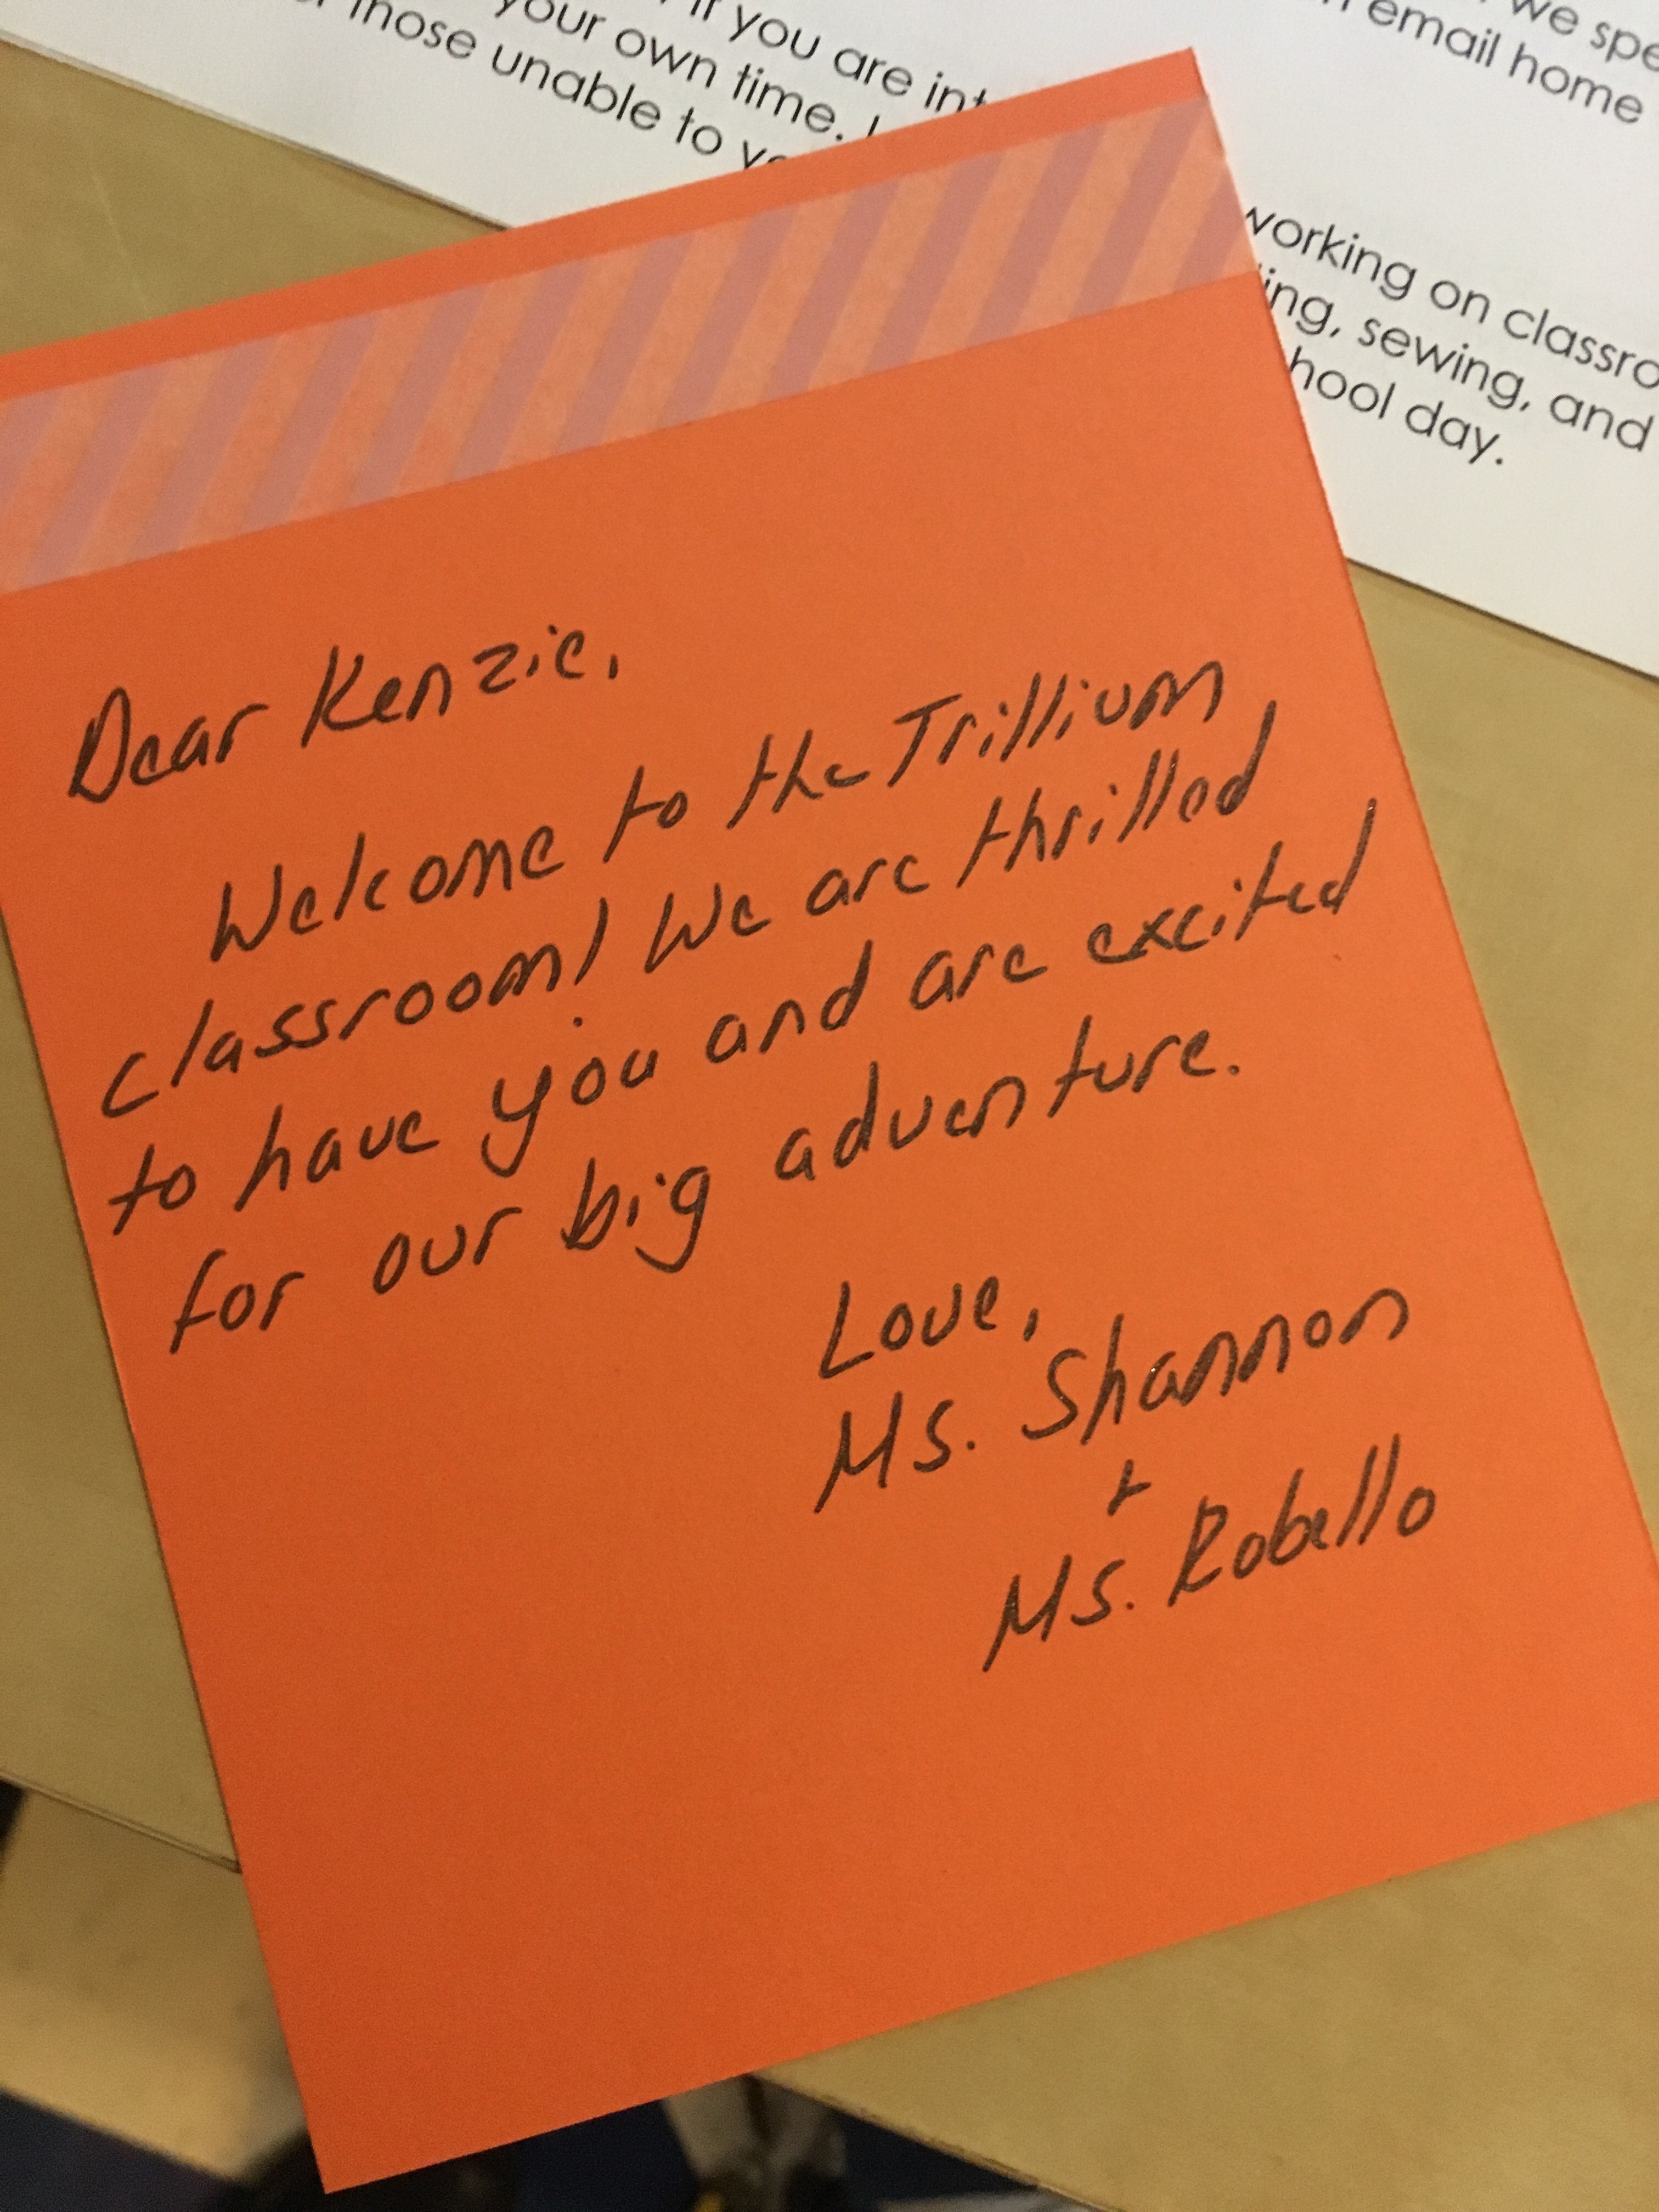 if you are
your own time.
those unable to
we
email home
working on
sewing, and
day.
Dear Kenzie,
Welcome to the Trillium
classroom! We are thrilled
to have you and are excited
for our big adventure.
Love,
Ms. Shannon
+
Ms. Robello